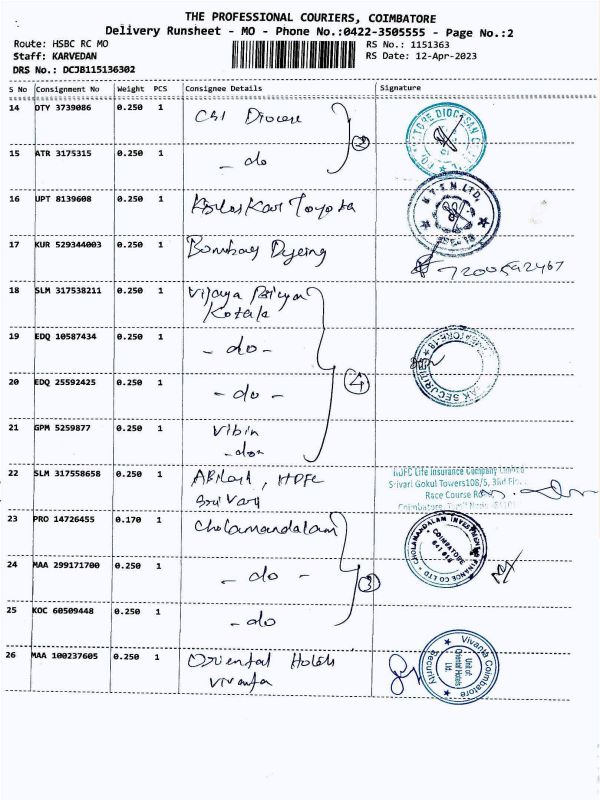 THE PROFESSIONAL COURIERS, COIMBATORE
Delivery Runsheet - MO - Phone No.:0422-3505555 - Page No.:2
Route: HSBC RC MO
RS No.: 1151363
Staff: KARVEDAN
RS Date: 12-Apr-2023
DRS No.: DCJB115136302
S No Consignment No Weight PCS Consignee Details Signature
14 DTY 3739086 0.250 1 CSI Diocese
2
15 ATR 3175315 0.250 1 - do
16 UPT 8139608 0.250 1 Toyota
N.T.S.N LTD.
17 KUR 529344003 0.250 1 Bombay Dyeing
7200592467
18 SLM 317538211 0.250 1 Vijaya
19 EDQ 10587434 0.250 1 - do -
20 EDQ 25592425 0.250 1 - do -
4
21 GPM 5259877 0.250 1 Vibin
22 SLM 317558658 0.250 1 Abilash, HDFC
HDFC Life Insurance Company Limited
Srivari Gokul Towers108/5, 3rd
Race Course
Coimbatore,
23 PRO 14726455 0.170 1 Cholamandalam
CHOLAMANDALAM INVESTMENT FINANCE CO LTD
COIMBATORE
641 018
24 MAA 299171700 0.250 1 - do -
3
25 KOC 60509448 0.250 1 - do
26 MAA 100237605 0.250 1 Oriental Hotels
Vivanta
Vivanta Coimbatore
Unit of
Oriental Hotels
Ltd.
Security